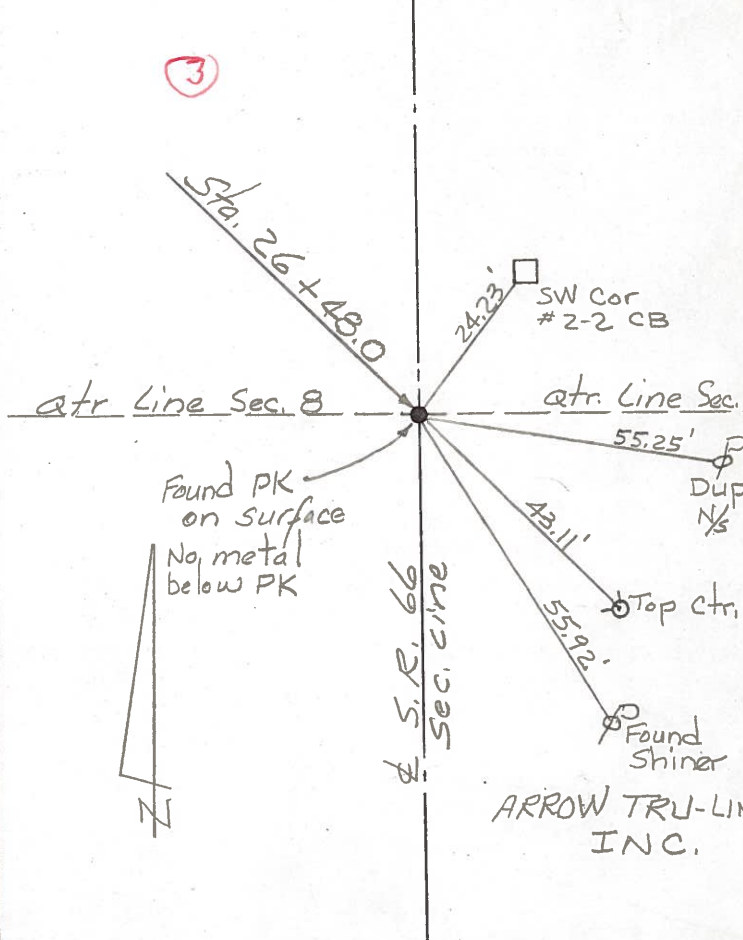 3
Sta. 26+48.0
24.23'
SW Cor
#2-2 CB
Qtr Line Sec. 8
Qtr. Line Sec.
55.25'
P
Dup
N/S
Found PK
on surface
No metal
below PK
43.11'
Top Ctr.
55.92'
℄ S.R. 66
Sec. Line
P
Found
Shiner
N
ARROW TRU-LIN
INC.